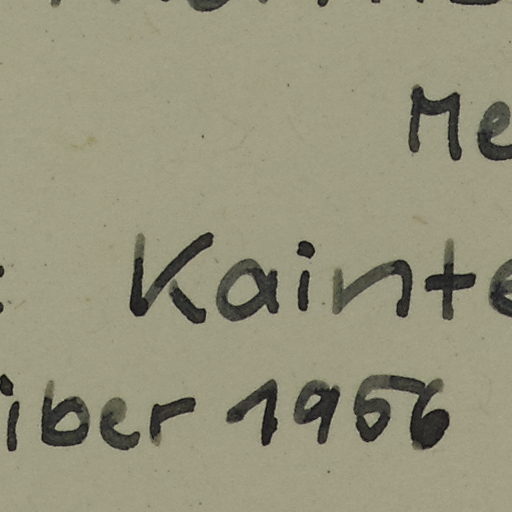 Me
: Kainte
iber 1956